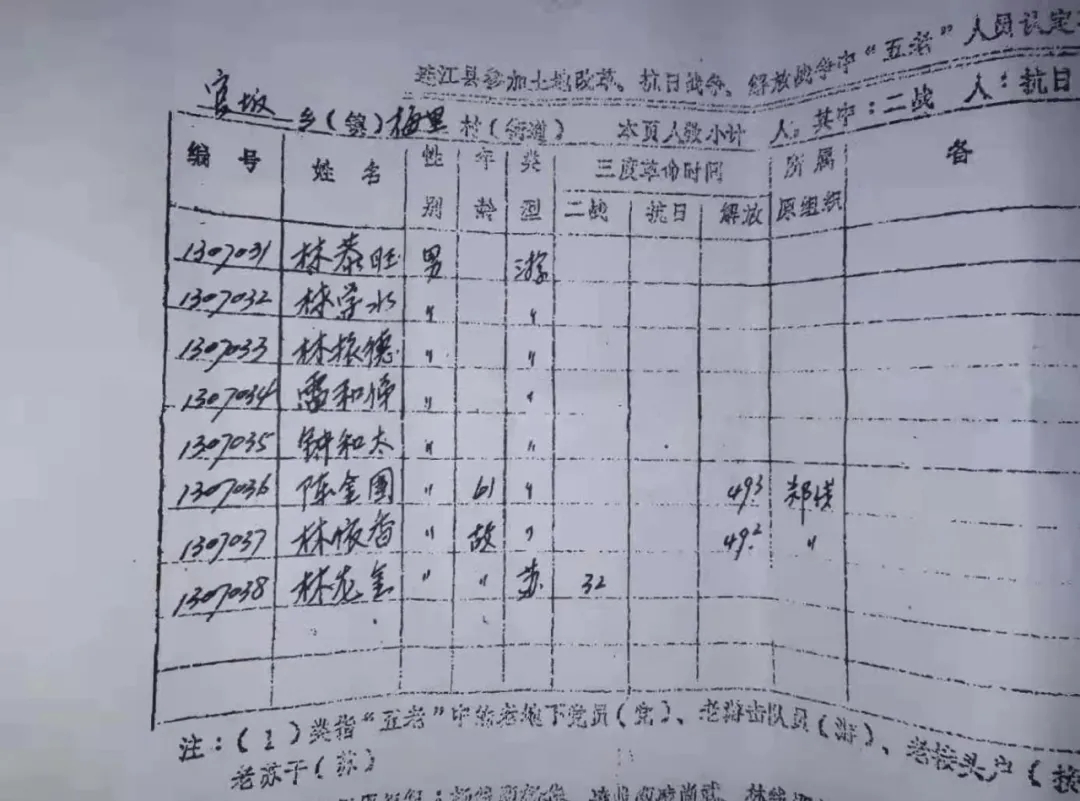 连江县参加土地改革、抗日战争、解放战争中“五老”人员认定
官坂 乡(镇) 梅里 村(街道) 本页人数小计 人。其中:二战 人:抗日
编号 姓名 性别 年龄 类型 三度革命时间 所属原组织 备
二战 抗日 解放
1307031 林泰旺 男 游
1307032 林学水 〃 〃
1307033 林振德 〃 〃
1307034 雷和 〃 〃
1307035 钟和太 〃 〃
1307036 陈金围 〃 61 〃 49.3 郑
1307037 林依香 〃 故 〃 49.2 〃
1307038 林龙金 〃 〃 苏 32
注:(1)类指“五老”中的老地下党员(党)、老游击队员(游)、老接头户(接
老苏干(苏)